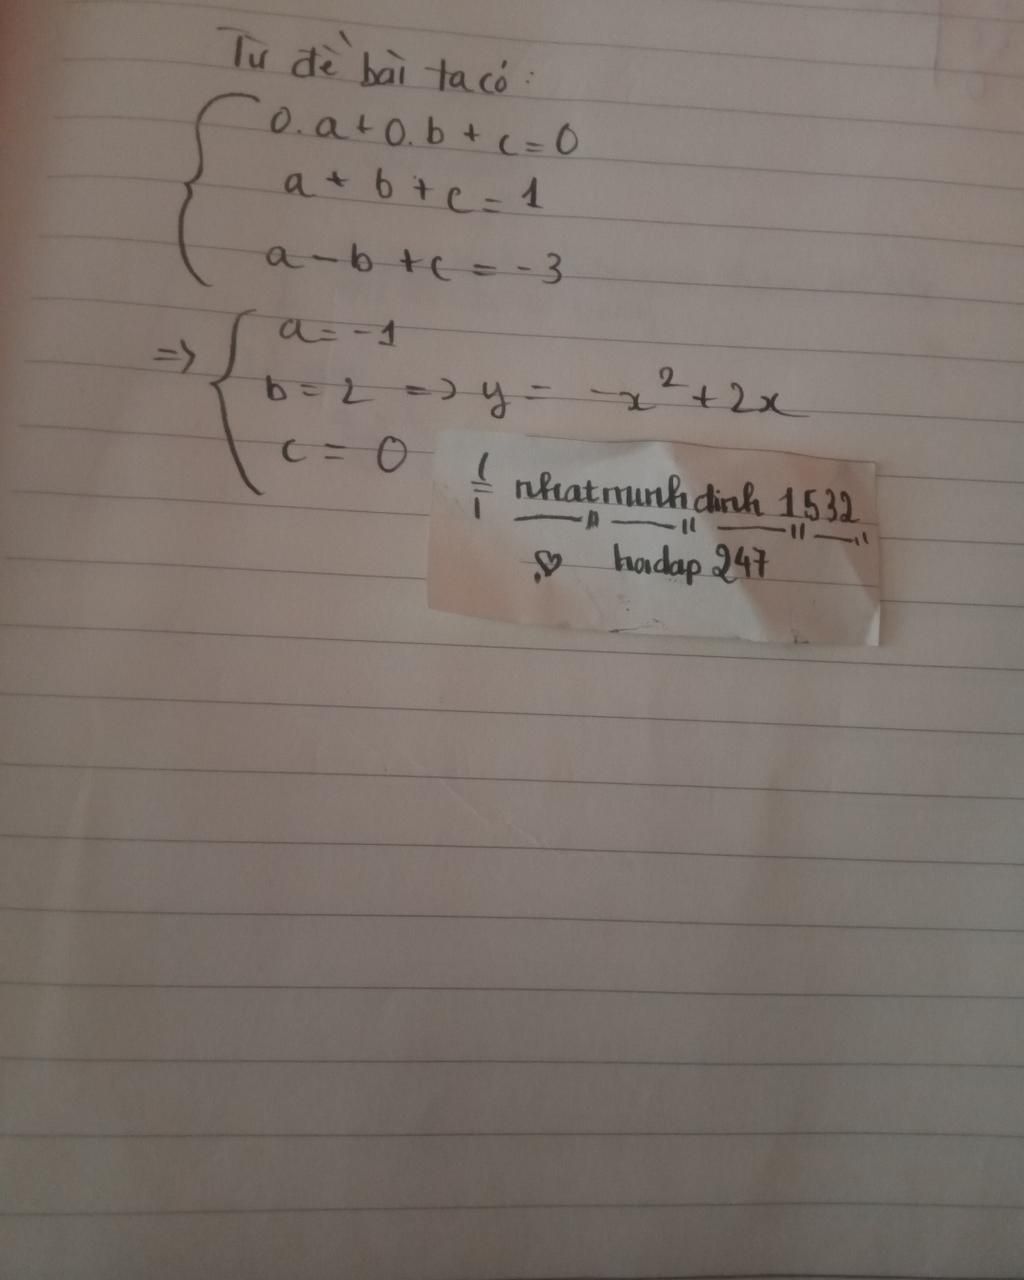 Từ đề bài ta có:
0.a + 0.b + c = 0
a + b + c = 1
a - b + c = -3
=> a = -1
b = 2 => y = -x² + 2x
c = 0
nhatminhdinh 1532
hoidap 247